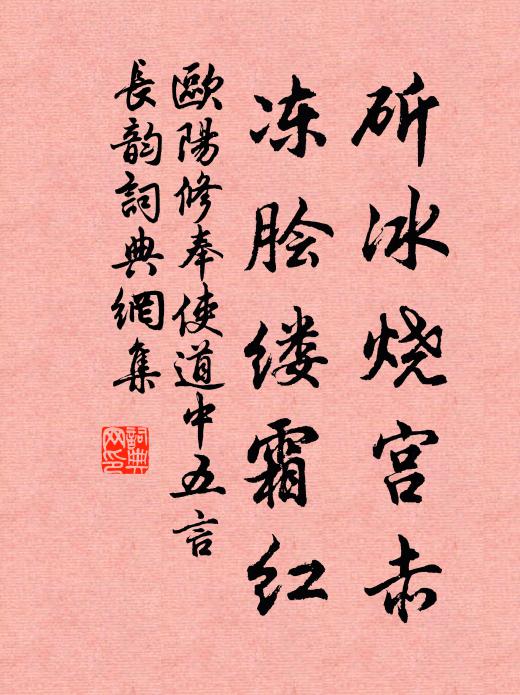 斫冰烧宫赤
冻脍缕霜红
歐陽修奉使道中五言
長韵詞典網集
詞典
网印